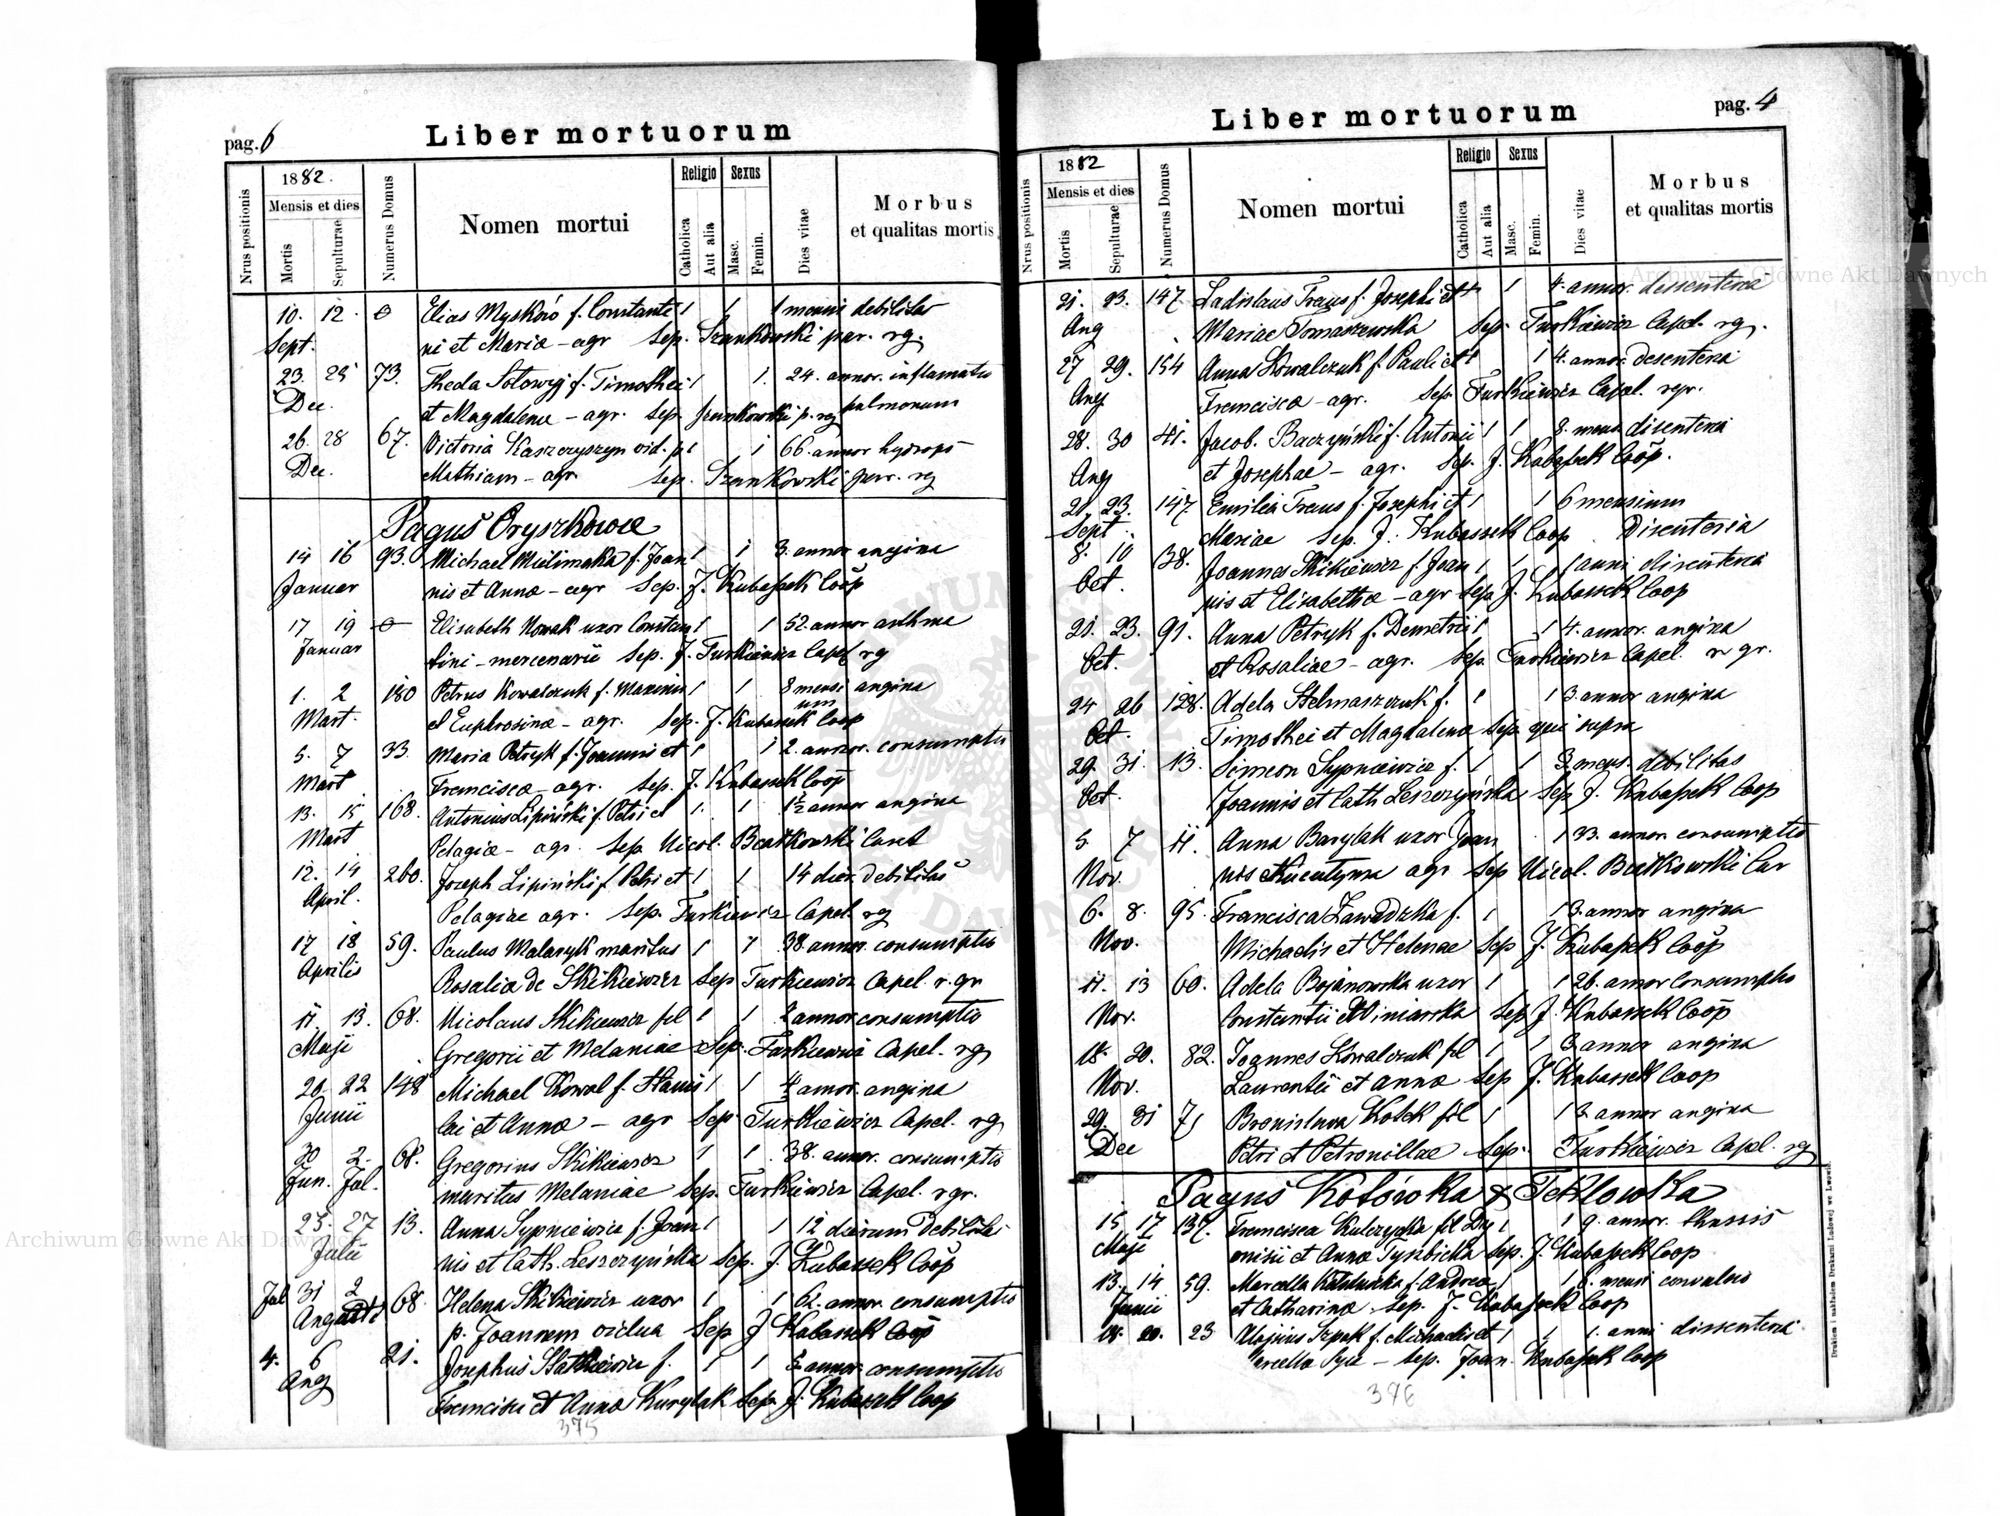 pag. 6
Liber mortuorum
Nrus positionis
1882.
Mensis et dies
Mortis
Sepulturae
Numerus Domus
Nomen mortui
Religio
Catholica
Aut alia
Sexus
Masc.
Femin.
Dies vitae
Morbus
et qualitas mortis
10. 12. Elias Myśków f. Constanti 1 1 1 mensis debilitas
Sept. ni et Maria - agr Sep. Szankowski par. rg.
23. 25 73. Theda f. Timothei 1 1. 24. annor. inflamatio
Dec. et Magdalena - agr. Sep. Szankowski p. rg pulmonum
26. 28 67. Victoria Kaszczyszyn vid. p. 1 1 66. annor hydrops
Dec. Mathiam - agr Sep. Szankowski par. rg
Pagus Oryszkowce
14 16 93. Michael f. Joan 1 1 3. annor angina
Januar nis et Annæ - agr Sep. J. Kubassek Coop
17 19 Elisabeth Nowak uxor Constan 1 1 52. annor asthma
Januar tini - mercenarii Sep. J. Turkiewicz Capel rg
1. 2 180 Petrus Kowalczuk f. Maximi 1 1 8 mensi angina
um
Mart. et Euphrosinæ - agr. Sep. J. Kubassek Coop
5. 7 33. Maria Petryk f. Joannis et 1 1 2. annor. consumptio
Mart Franciscæ - agr. Sep. J. Kubassek Coop
13. 15 168. Antonius Lipiński f. Petri et 1. 1 1½ annor angina
Mart Pelagiæ - agr. Sep. Nicol. Curat
12. 14 260. Joseph Lipiński f. Petri et 1 1 14 dier. debilitas
April. Pelagiæ agr. Sep. Turkiewicz Capel. rg
17 18 59. Paulus maritus 1 1 38. annor. consumptio
Aprilis Rosalia de Skikiewicz Sep Turkiewicz Capel r. gr
11. 13. 68. Nicolaus Skikiewicz fil 1 1 2 annor consumptio
Maji Gregorii et Melaniae Sep. Turkiewicz Capel. rg
20. 22 148 Michael Kowal f. Stanis 1 1 annor. angina
Junii lai et Annæ - agr Sep Turkiewicz Capel. rg
30 2. 68. Gregorius Skikiewicz 1 1 38. annor. consumptio
Jun. Jul. maritus Melaniae Sep. Turkiewicz Capel. rgr.
25. 27 13. Anna Sypniewicz f. Joan 1 1 12 dierum debilitas
Julii nis et Cath. Leszczyńska Sep. J. Kubassek Coop
Jul 31 2 68. Helena Skikiewicz uxor 1 1 62. annor. consumptio
August p. Joannem vidua Sep J Kubassek Coop
4. 6 21. Josephus f. 1 1 annor. consumptio
Aug Francisci et Annæ Kurylak Sep. J. Kubassek Coop
375
pag. 4
Liber mortuorum
Nrus positionis
1882
Mensis et dies
Mortis
Sepulturae
Numerus Domus
Nomen mortui
Religio
Catholica
Aut alia
Sexus
Masc.
Femin.
Dies vitae
Morbus
et qualitas mortis
21. 23. 147 Ladislaus f. Josephi et 1 1 4. annor. dissenteria
Aug Mariae Tomaszewska Sep. Turkiewicz Capel. rg.
27 29. 154 Anna Kowalczuk f. Pauli et 1 1 4. annor. desenteria
Aug Franciscæ - agr. Sep. Turkiewicz Capel. rgr.
28. 30 41. Jacob. Baczyński f. Antonii 1 1 8. mens disenteria
Aug et Josephae - agr. Sep. J. Kubassek Coop.
21. 23. 147 Emilia f. Josephi et 1 1 6 mensium
Sept. Mariae Sep. J. Kubassek Coop Disenteria
8. 10 38. Joannes Skikiewicz f. Joan 1 1 1 anni disenteria
Oct. nis et Elisabethæ - agr Sep. J. Kubassek Coop
21. 23. 91. Anna Petryk f. Demetrii 1 1 4. annor. angina
Oct. et Rosaliae - agr. Sep. Turkiewicz Capel. r gr.
24 26 128. Adela Stelmaszczuk f. 1 1 3. annor angina
Oct. Timothei et Magdalena Sep. qui supra
29. 31. 13. Simeon Sypniewicz f. 1 1 3 mens. debilitas
Oct. Joannis et Cath Leszczyńska Sep J. Kubassek Coop
5. 7 11. Anna Barylak uxor Joan 1 33. annor consumptio
Nov. nis agr Sep Nicol. Cur
6. 8. 95. Francisca Zawadzka f. 1 1 3. annor angina
Nov. Michaelis et Helenae Sep J. Kubassek Coop
11. 13 60. Adela Bojanowska uxor 1 1 26. annor consumptio
Nov. Constantii Winiarska Sep J. Kubassek Coop
18. 20. 82. Joannes Kowalczuk fil 1 1 3 annor angina
Nov. Laurentii et Annæ Sep J. Kubassek Coop
29. 31 71 Bronislava fil 1 1 3. annor angina
Dec Petri et Petronillae Sep. Turkiewicz Capel. rg
Pagus Kotówka & Teklowka
15. 17 137. Francisca Kulczycka fil Dy 1 1 9. annor. thussis
Maji onisii et Annæ Sep. J. Kubassek Coop
13. 14 59. Marcella f. Andreæ 1 1 6. mensi convulsio
Junii et Catharinæ Sep. J. Kubassek Coop
18. 20. 23 Alojsius Szpak f. Michaelis et 1 1 1. anni dissenteria
- Sep. Joan. Kubassek Coop
376
Drukiem i nakładem Drukarni Ludowej we Lwowie.
Archiwum Główne Akt Dawnych
Archiwum Główne Akt Dawnych